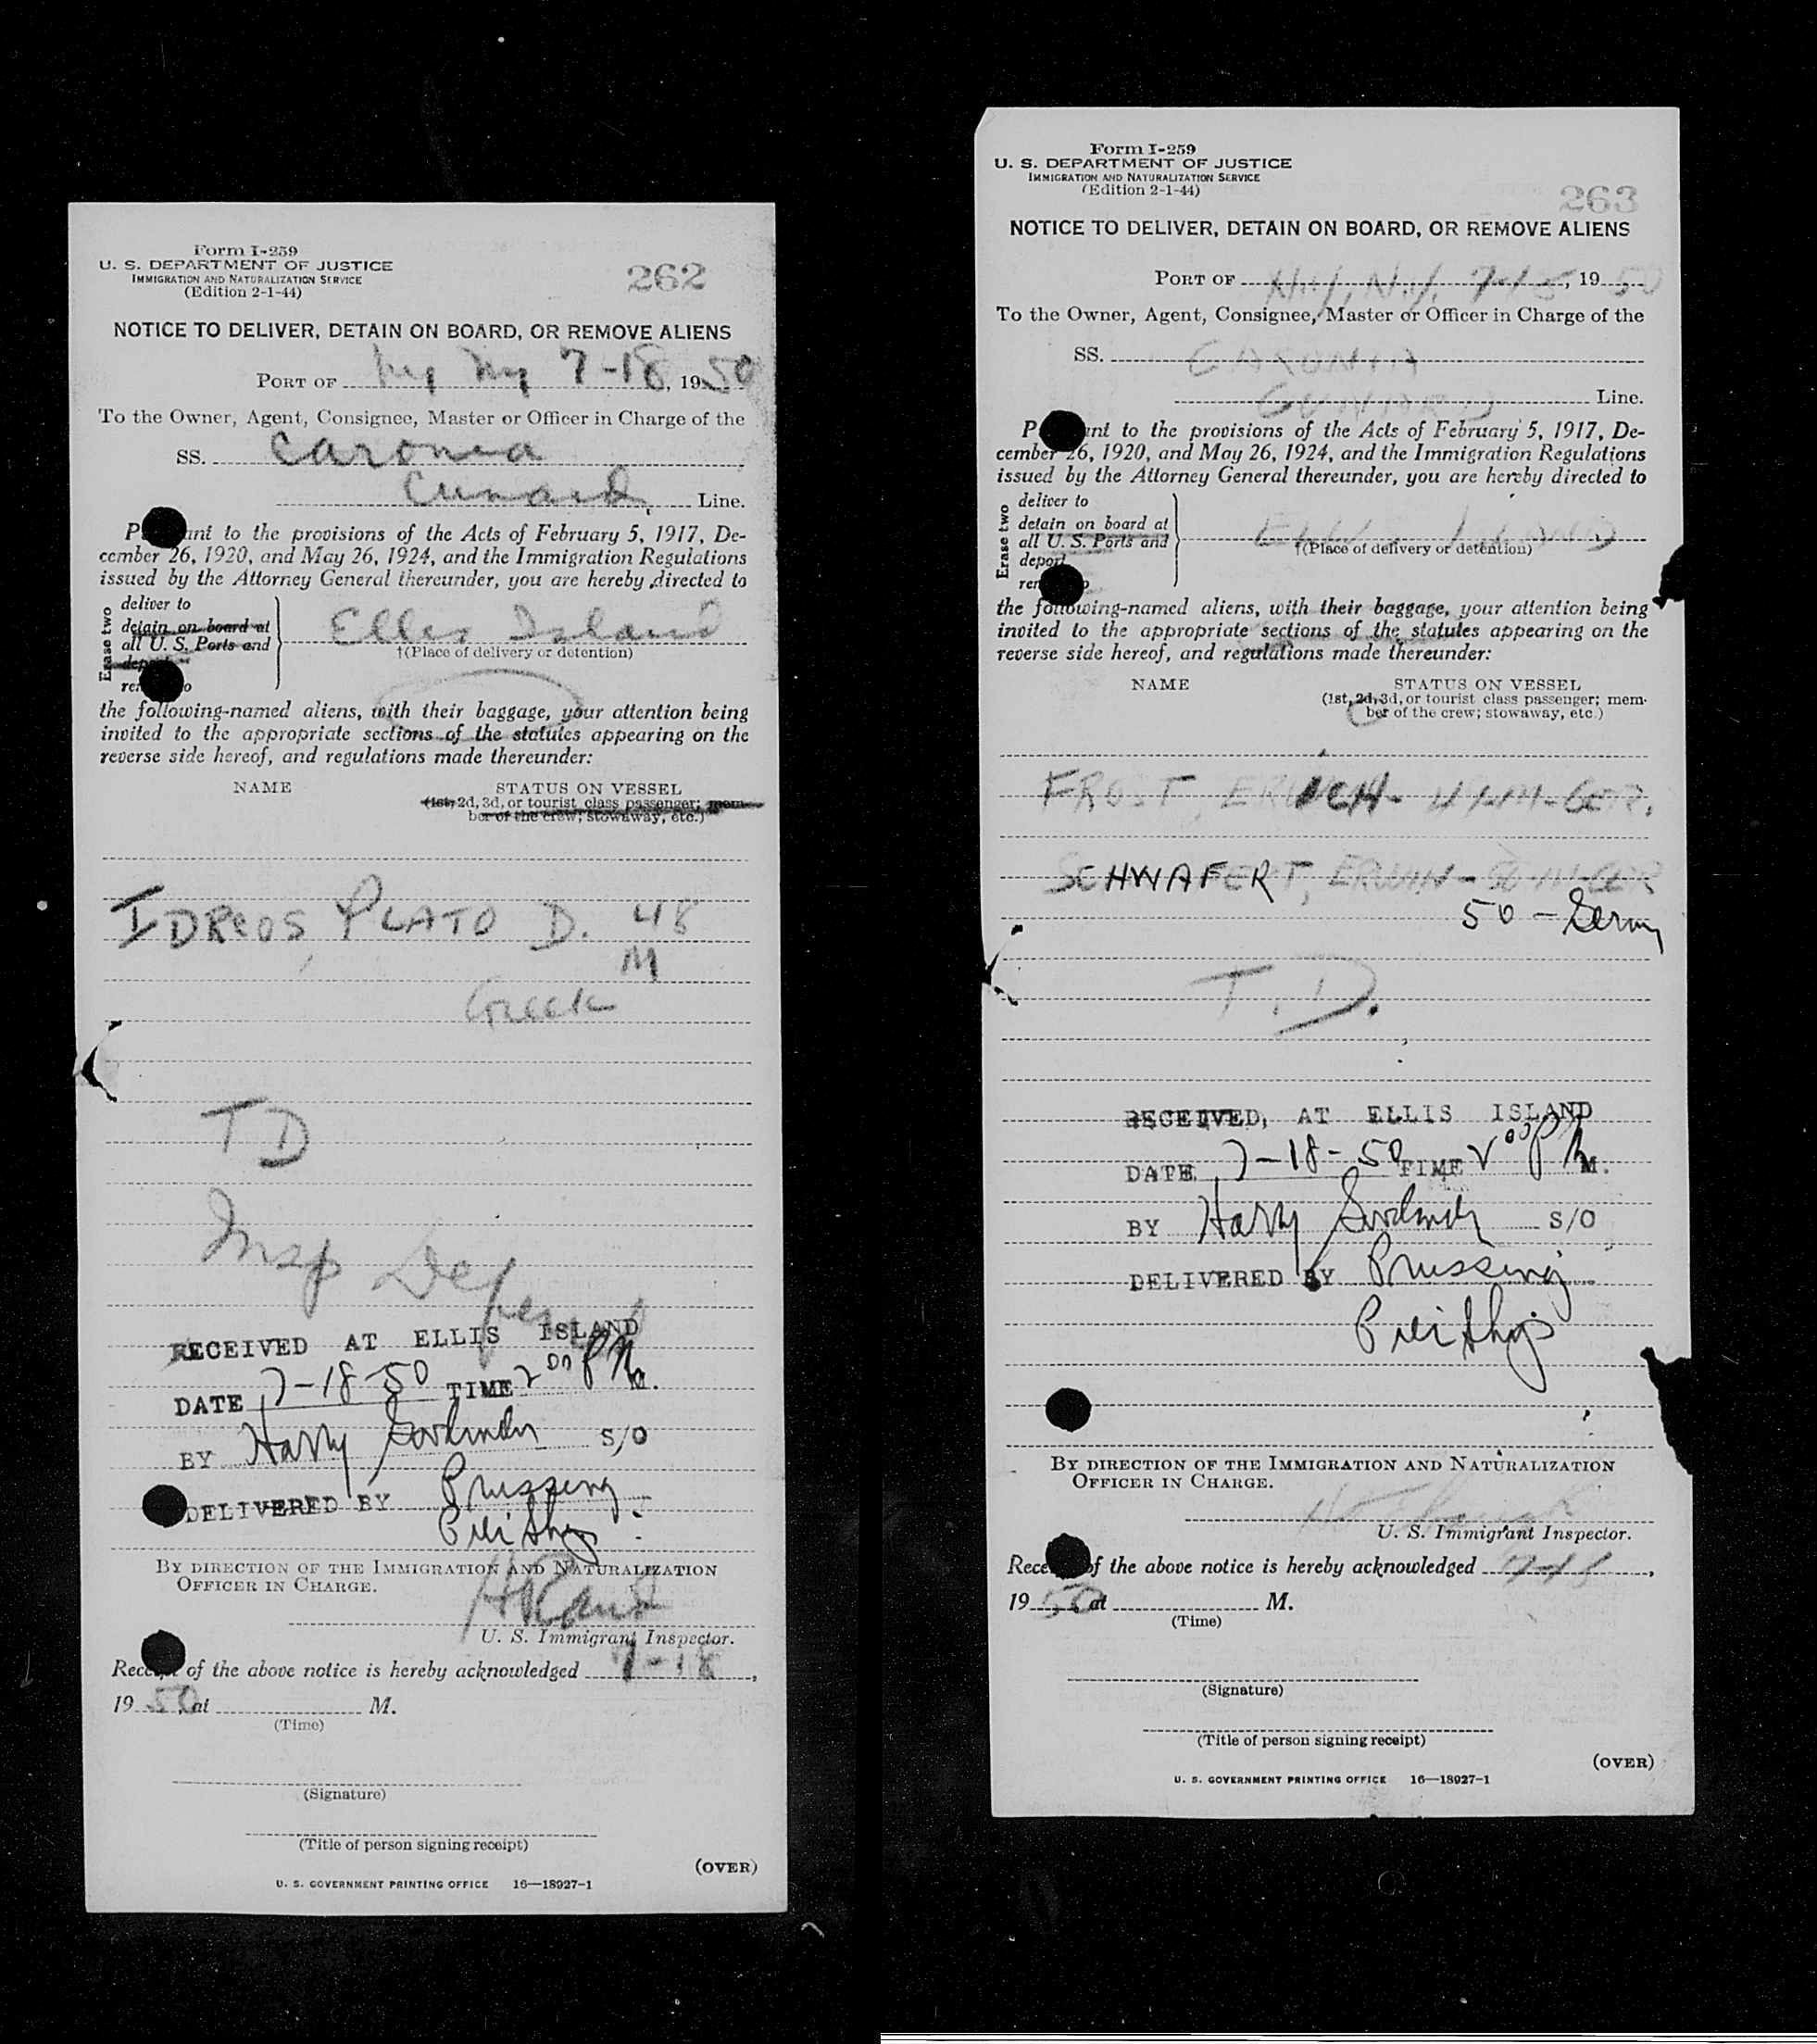 Form I-259
U. S. DEPARTMENT OF JUSTICE
IMMIGRATION AND NATURALIZATION SERVICE
(Edition 2-1-44)
262
NOTICE TO DELIVER, DETAIN ON BOARD, OR REMOVE ALIENS
PORT OF NY NY 7-18, 1950
To the Owner, Agent, Consignee, Master or Officer in Charge of the
SS. Caronia
Cunard Line.
P ant to the provisions of the Acts of February 5, 1917, De-
cember 26, 1920, and May 26, 1924, and the Immigration Regulations
issued by the Attorney General thereunder, you are hereby directed to
Erase two
deliver to
detain on board at
all U. S. Ports and
deport
re o
Ellis Island
†(Place of delivery or detention)
the following-named aliens, with their baggage, your attention being
invited to the appropriate sections of the statutes appearing on the
reverse side hereof, and regulations made thereunder:
NAME STATUS ON VESSEL
(1st, 2d, 3d, or tourist class passenger; mem-
ber of the crew; stowaway, etc.)
IDREOS, PLATO D. 48
M
Greek
TD
Insp
RECEIVED AT ELLIS ISLAND
DATE 7-18-50 TIME 2 00 P M.
BY Harry S/O
DELIVERED BY Prussing
BY DIRECTION OF THE IMMIGRATION AND NATURALIZATION
OFFICER IN CHARGE.
U. S. Immigrant Inspector.
Receipt of the above notice is hereby acknowledged 7-18,
1950 at M.
(Time)
(Signature)
(Title of person signing receipt)
(OVER)
U. S. GOVERNMENT PRINTING OFFICE 16—18927-1
Form I-259
U. S. DEPARTMENT OF JUSTICE
IMMIGRATION AND NATURALIZATION SERVICE
(Edition 2-1-44)
263
NOTICE TO DELIVER, DETAIN ON BOARD, OR REMOVE ALIENS
PORT OF N.Y., N.Y. 7-18, 1950
To the Owner, Agent, Consignee, Master or Officer in Charge of the
SS. CARONIA
CUNARD Line.
P ant to the provisions of the Acts of February 5, 1917, De-
cember 26, 1920, and May 26, 1924, and the Immigration Regulations
issued by the Attorney General thereunder, you are hereby directed to
Erase two
deliver to
detain on board at
all U. S. Ports and
deport
re o
ELLIS ISLAND
†(Place of delivery or detention)
the following-named aliens, with their baggage, your attention being
invited to the appropriate sections of the statutes appearing on the
reverse side hereof, and regulations made thereunder:
NAME STATUS ON VESSEL
(1st, 2d, 3d, or tourist class passenger; mem-
ber of the crew; stowaway, etc.)
FROST, ERICH - GER.
SCHWAFERT, ERWIN - GER
50 - Germ
T.D.
RECEIVED, AT ELLIS ISLAND
DATE 7-18-50 TIME 2 00 P M.
BY Harry S/O
DELIVERED BY Prussing
BY DIRECTION OF THE IMMIGRATION AND NATURALIZATION
OFFICER IN CHARGE.
U. S. Immigrant Inspector.
Rece of the above notice is hereby acknowledged 7-18,
1950 at M.
(Time)
(Signature)
(Title of person signing receipt)
(OVER)
U. S. GOVERNMENT PRINTING OFFICE 16—18927-1